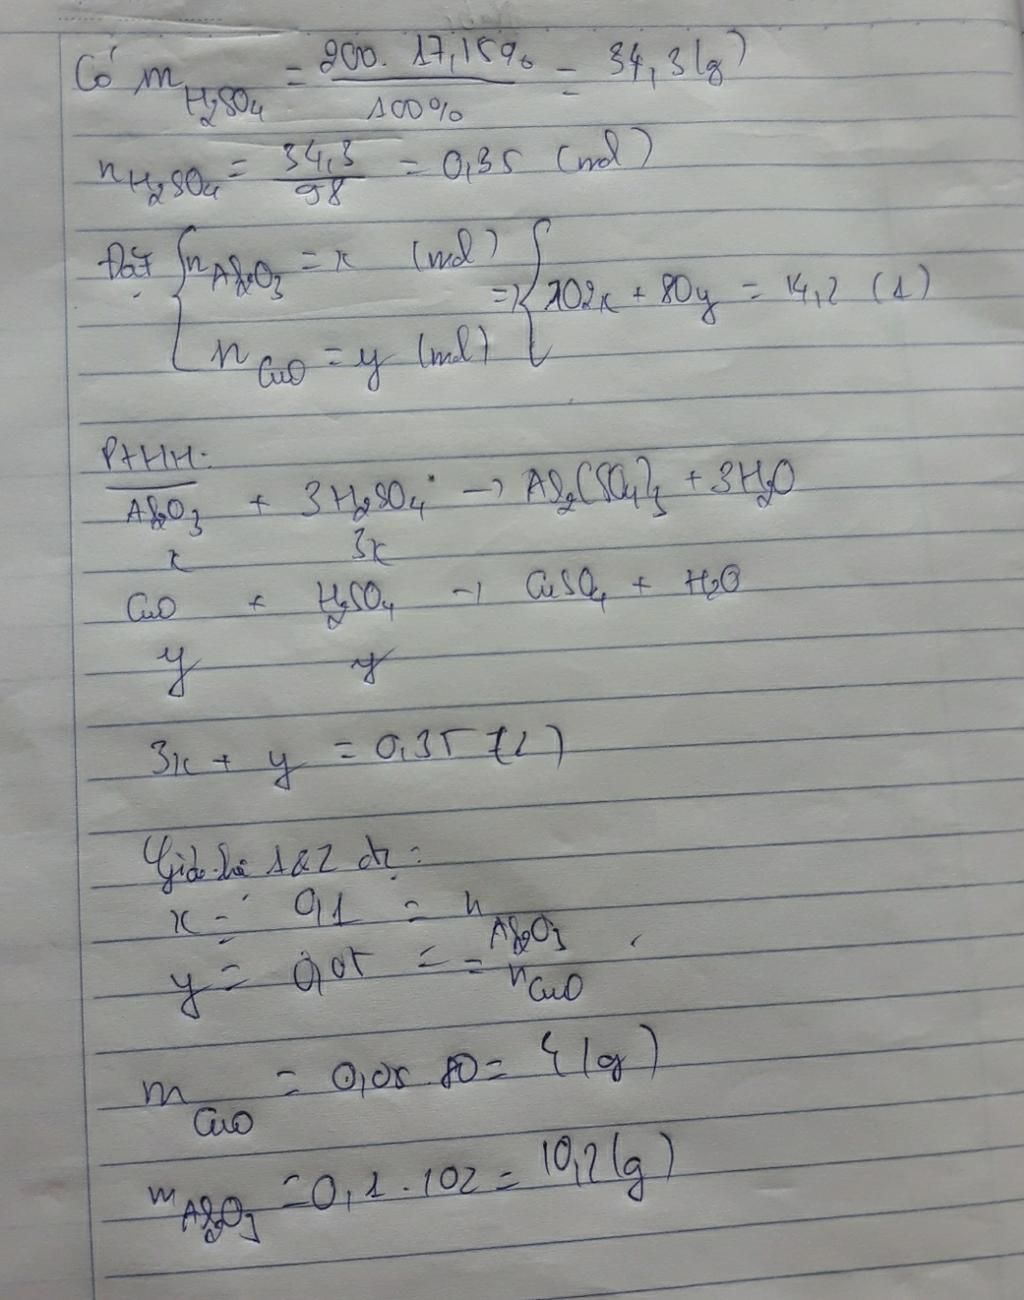 Có m H₂SO₄ = 200. 17,15% / 100% = 34,3 (g)
n H₂SO₄ = 34,3 / 98 = 0,35 (mol)
Đặt { n Al₂O₃ = x (mol)
=> { 102x + 80y = 14,2 (1)
n CuO = y (mol)
PTHH:
Al₂O₃ + 3H₂SO₄ -> Al₂(SO₄)₃ + 3H₂O
x 3x
CuO + H₂SO₄ -> CuSO₄ + H₂O
y y
3x + y = 0,35 (2)
Giải hệ 1&2 đc:
x = 0,1 = n Al₂O₃
y = 0,05 = = n CuO
m CuO = 0,05 80 = 4 (g)
m Al₂O₃ = 0,1 . 102 = 10,2 (g)